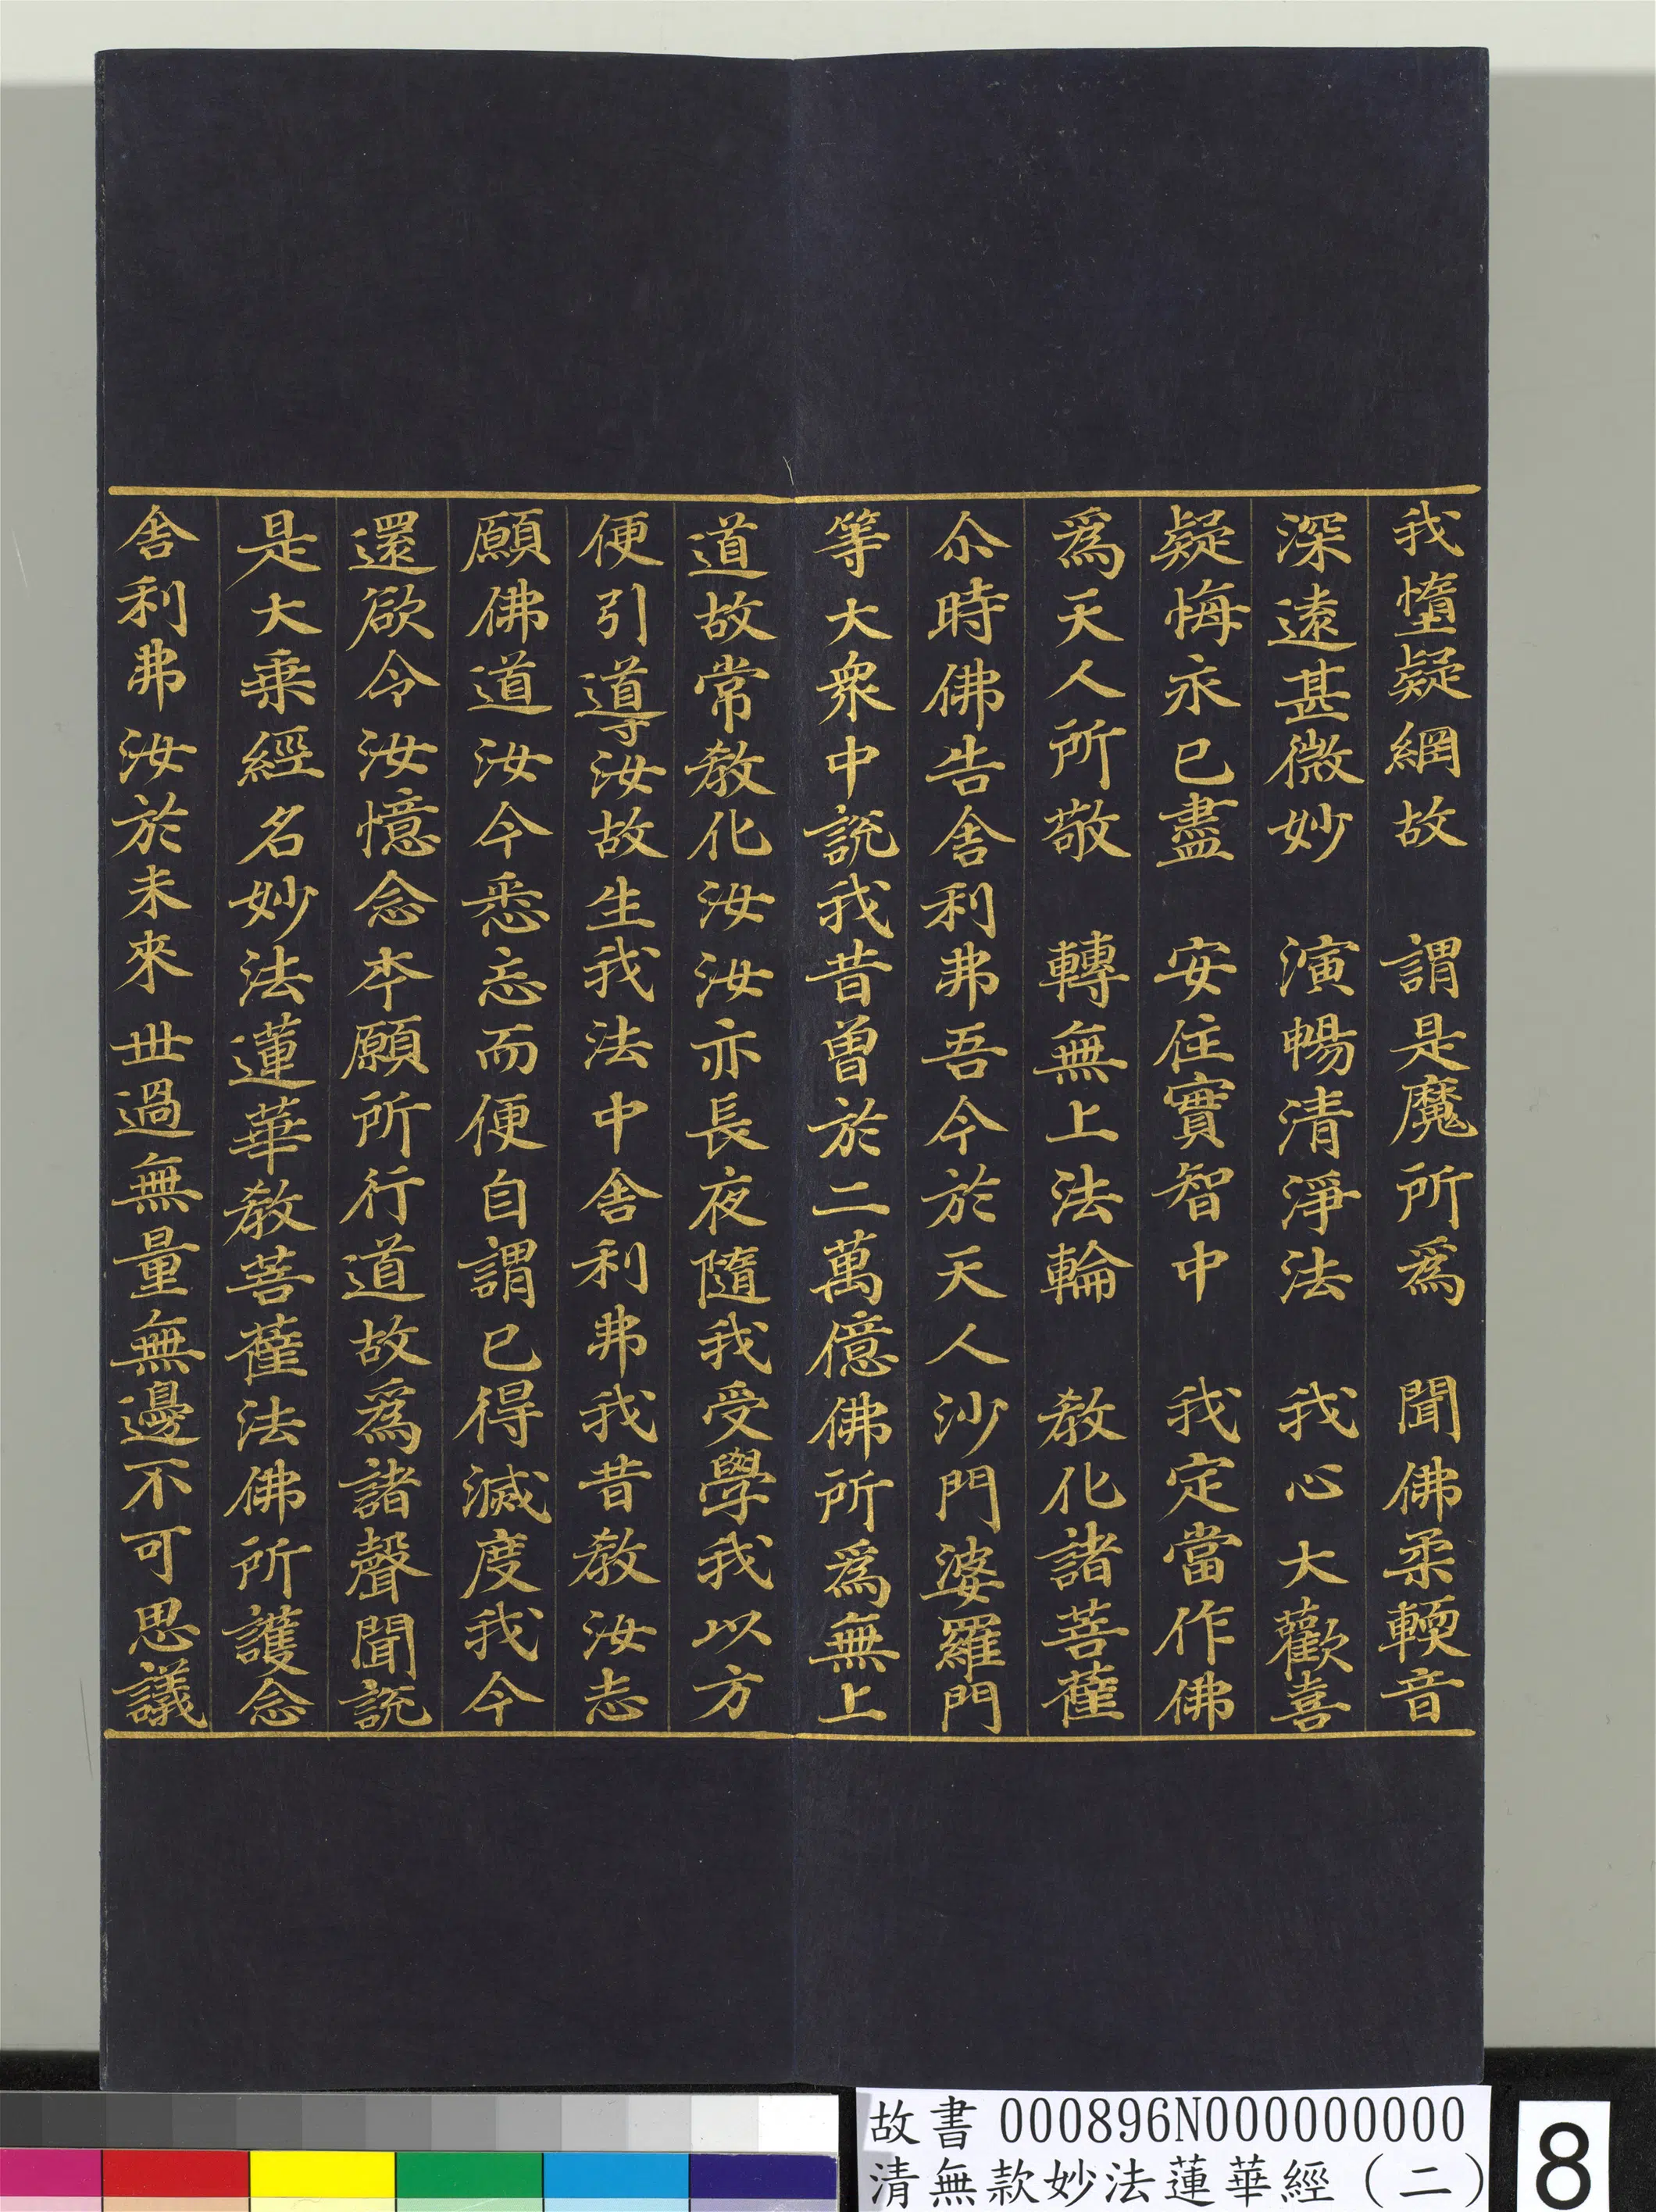 我墮疑網故　謂是魔所爲　聞佛柔輭音
深遠甚微妙　演暢清淨法　我心大歡喜
疑悔永已盡　安住實智中　我定當作佛
爲天人所敬　轉無上法輪　教化諸菩薩
尒時佛告舍利弗吾今於天人沙門婆羅門
等大衆中說我昔曾於二萬億佛所爲無上
道故常教化汝汝亦長夜隨我受學我以方
便引導汝故生我法中舍利弗我昔教汝志
願佛道汝今悉忘而便自謂已得滅度我今
還欲令汝憶念本願所行道故爲諸聲聞說
是大乗經名妙法蓮華教菩薩法佛所護念
舍利弗汝於未來世過無量無邊不可思議
故書 000896N000000000
清無款妙法蓮華經（二）
8